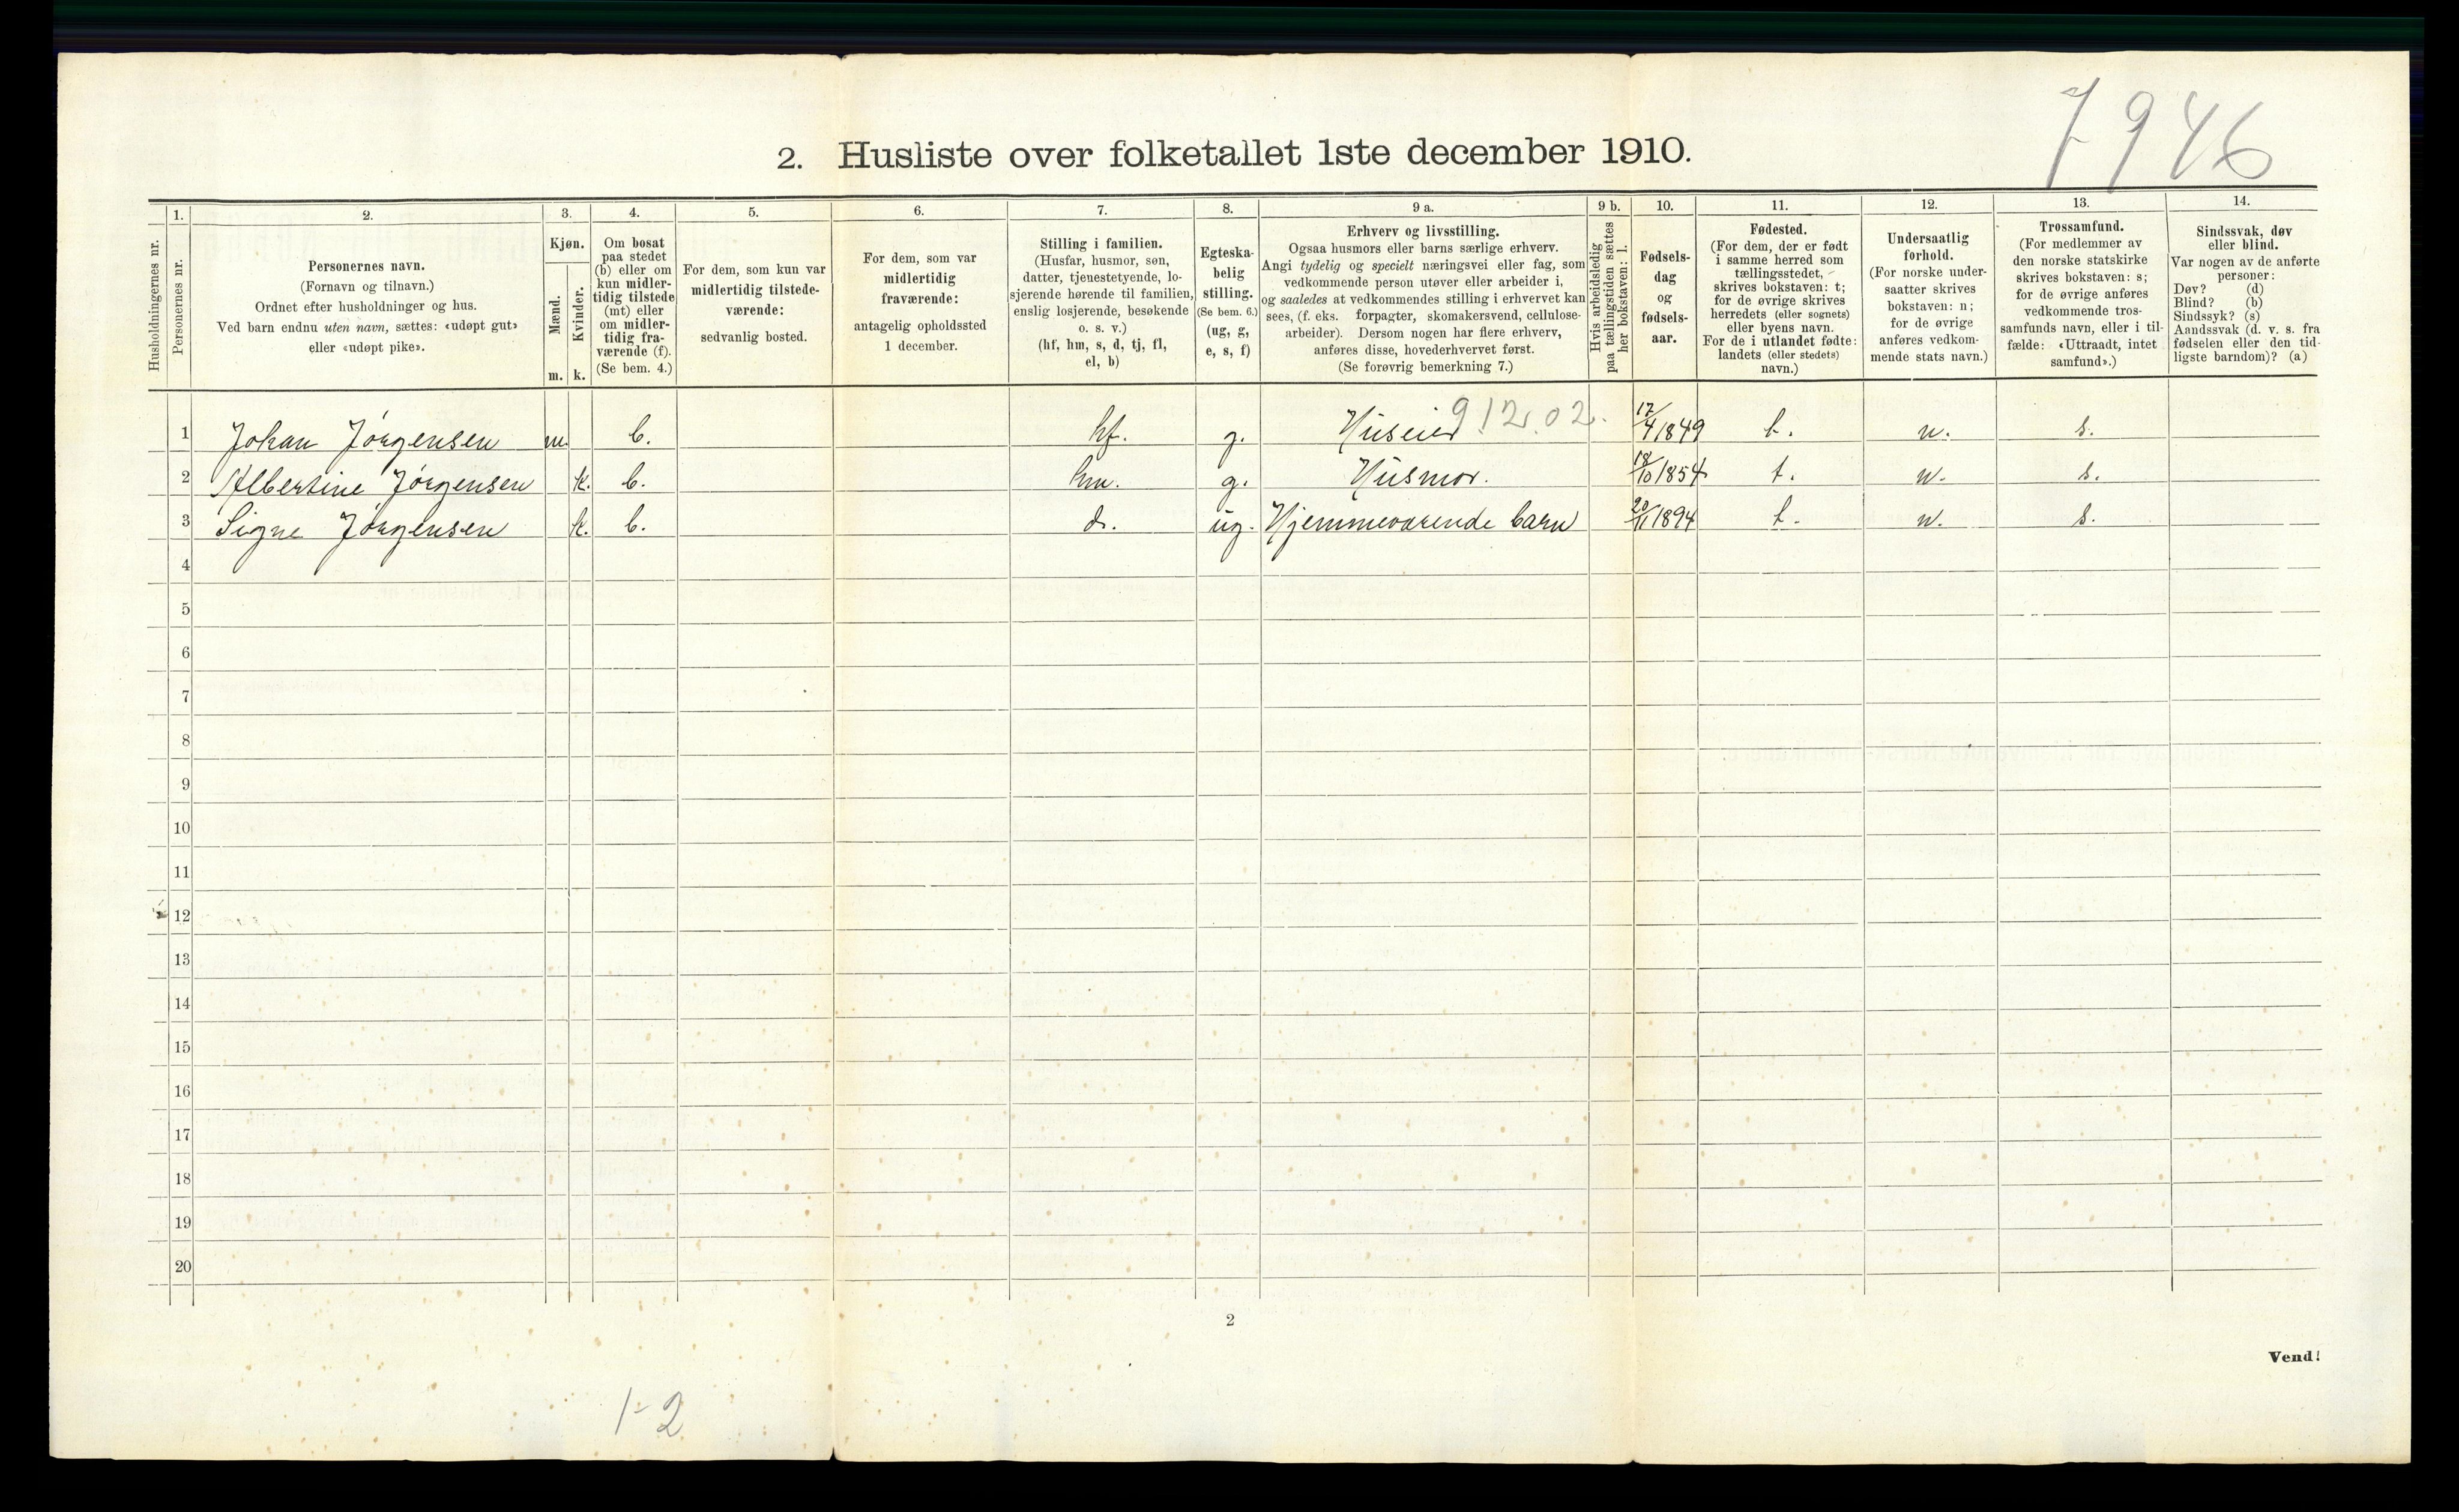 7946
2. Husliste over folketallet 1ste december 1910.
1. 2. 3. 4. 5. 6. 7. 8. 9 a. 9 b. 10. 11. 12. 13. 14.
Husholdningernes nr.
Personernes nr.
Personernes navn.
(Fornavn og tilnavn.)
Ordnet efter husholdninger og hus.
Ved barn endnu uten navn, sættes: «udøpt gut»
eller «udøpt pike».
Kjøn.
Mænd.
Kvinder.
m. k.
Om bosat
paa stedet
(b) eller om
kun midler-
tidig tilstede
(mt) eller
om midler-
tidig fra-
værende (f).
(Se bem. 4.)
For dem, som kun var
midlertidig tilstede-
værende:
sedvanlig bosted.
For dem, som var
midlertidig
fraværende:
antagelig opholdssted
1 december.
Stilling i familien.
(Husfar, husmor, søn,
datter, tjenestetyende, lo-
sjerende hørende til familien,
enslig losjerende, besøkende
o. s. v.)
(hf, hm, s, d, tj, fl,
el, b)
Egteska-
belig
stilling.
(Se bem. 6.)
(ug, g,
e, s, f)
Erhverv og livsstilling.
Ogsaa husmors eller barns særlige erhverv.
Angi tydelig og specielt næringsvei eller fag, som
vedkommende person utøver eller arbeider i,
og saaledes at vedkommendes stilling i erhvervet kan
sees, (f. eks. forpagter, skomakersvend, cellulose-
arbeider). Dersom nogen har flere erhverv,
anføres disse, hovederhvervet først.
(Se forøvrig bemerkning 7.)
Hvis arbeidsledig
paa tællingstiden sættes
her bokstaven: l.
Fødsels-
dag
og
fødsels-
aar.
Fødested.
(For dem, der er født
i samme herred som
tællingsstedet,
skrives bokstaven: t;
for de øvrige skrives
herredets (eller sognets)
eller byens navn.
For de i utlandet fødte:
landets (eller stedets)
navn.)
Undersaatlig
forhold.
(For norske under-
saatter skrives
bokstaven: n;
for de øvrige
anføres vedkom-
mende stats navn.)
Trossamfund.
(For medlemmer av
den norske statskirke
skrives bokstaven: s;
for de øvrige anføres
vedkommende tros-
samfunds navn, eller i til-
fælde: «Uttraadt, intet
samfund».)
Sindssvak, døv
eller blind.
Var nogen av de anførte
personer:
Døv? (d)
Blind? (b)
Sindssyk? (s)
Aandssvak (d. v. s. fra
fødselen eller den tid-
ligste barndom)? (a)
1 Johan Jørgensen m. b. hf. g. Huseier 912.02. 17/4 1849 t. n. s.
2 Albertine Jørgensen k. b. hm. g. Husmor. 18/10 1854 t. n. s.
3 Signe Jørgensen k. b. d. ug. Hjemmeværende barn 20/11 1894 t. n. s.
4
5
6
7
8
9
10
11
12
13
14
15
16
17
18
19
20
2
Vend!
1-2